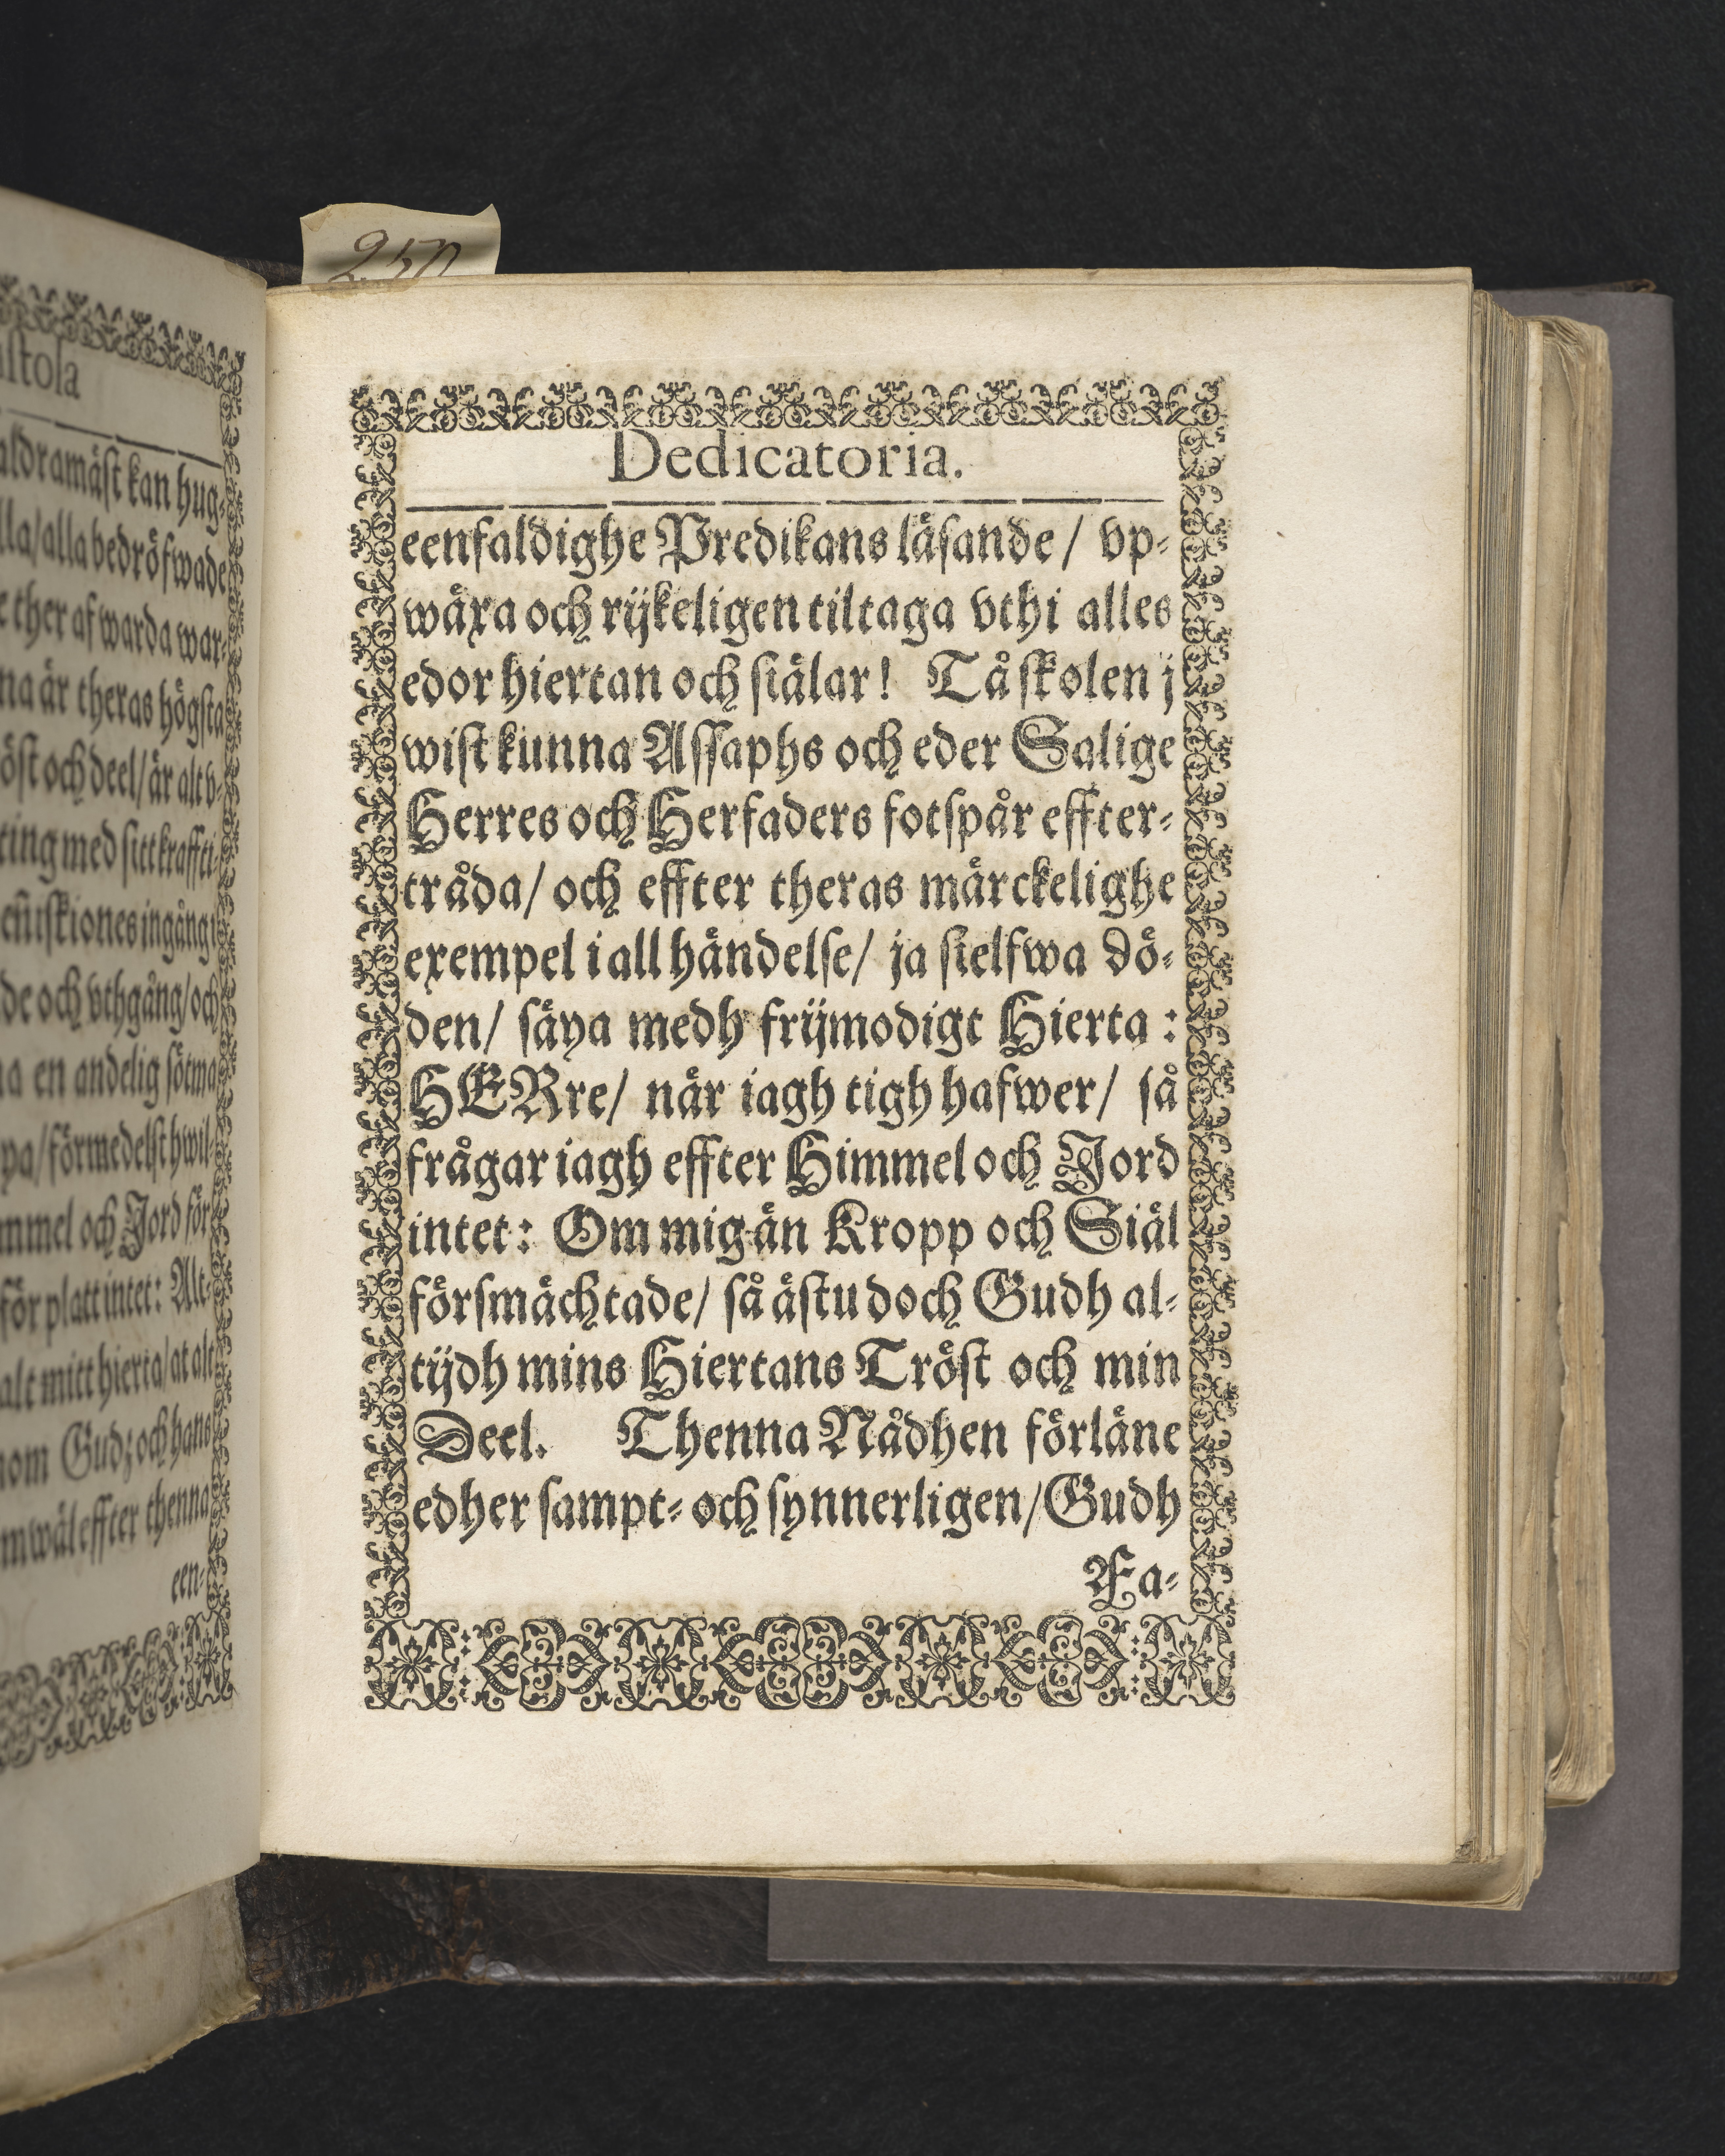 250
istola
aldramäst kan hug-
lla/ alla bedröfwade
ther af warda war-
na är theras högsta
öst och deel/ är alt v-
ting med sitt kraffti-
eñiskiones ingång i
de och vthgång/ och
na en andelig sötma
pa/ förmedelst hwil-
mmel och Jord för
för platt intet: Alt-
alt mitt hierta/ at alt
nom Gudz och hans
mwäl effter thenna
een-
Dedicatoria.
eenfaldighe Predikans läsande/ vp-
wäxa och rijkeligen tiltaga vthi alles
edor hiertan och siälar! Tå skolen j
wist kunna Assaphs och eder Salige
Herres och Herfaders fotspår effter-
tråda/ och effter theras märckelighe
exempel i all händelse/ ja sielfwa dö-
den/ säya medh frijmodigt Hierta:
HERre/ når iagh tigh hafwer/ så
frågar iagh effter Himmel och Jord
intet: Om mig än Kropp och Siäl
försmächtade/ så ästu doch Gudh al-
tijdh mins Hiertans Tröst och min
Deel. Thenna Nådhen förläne
edher sampt- och synnerligen/ Gudh
Fa-